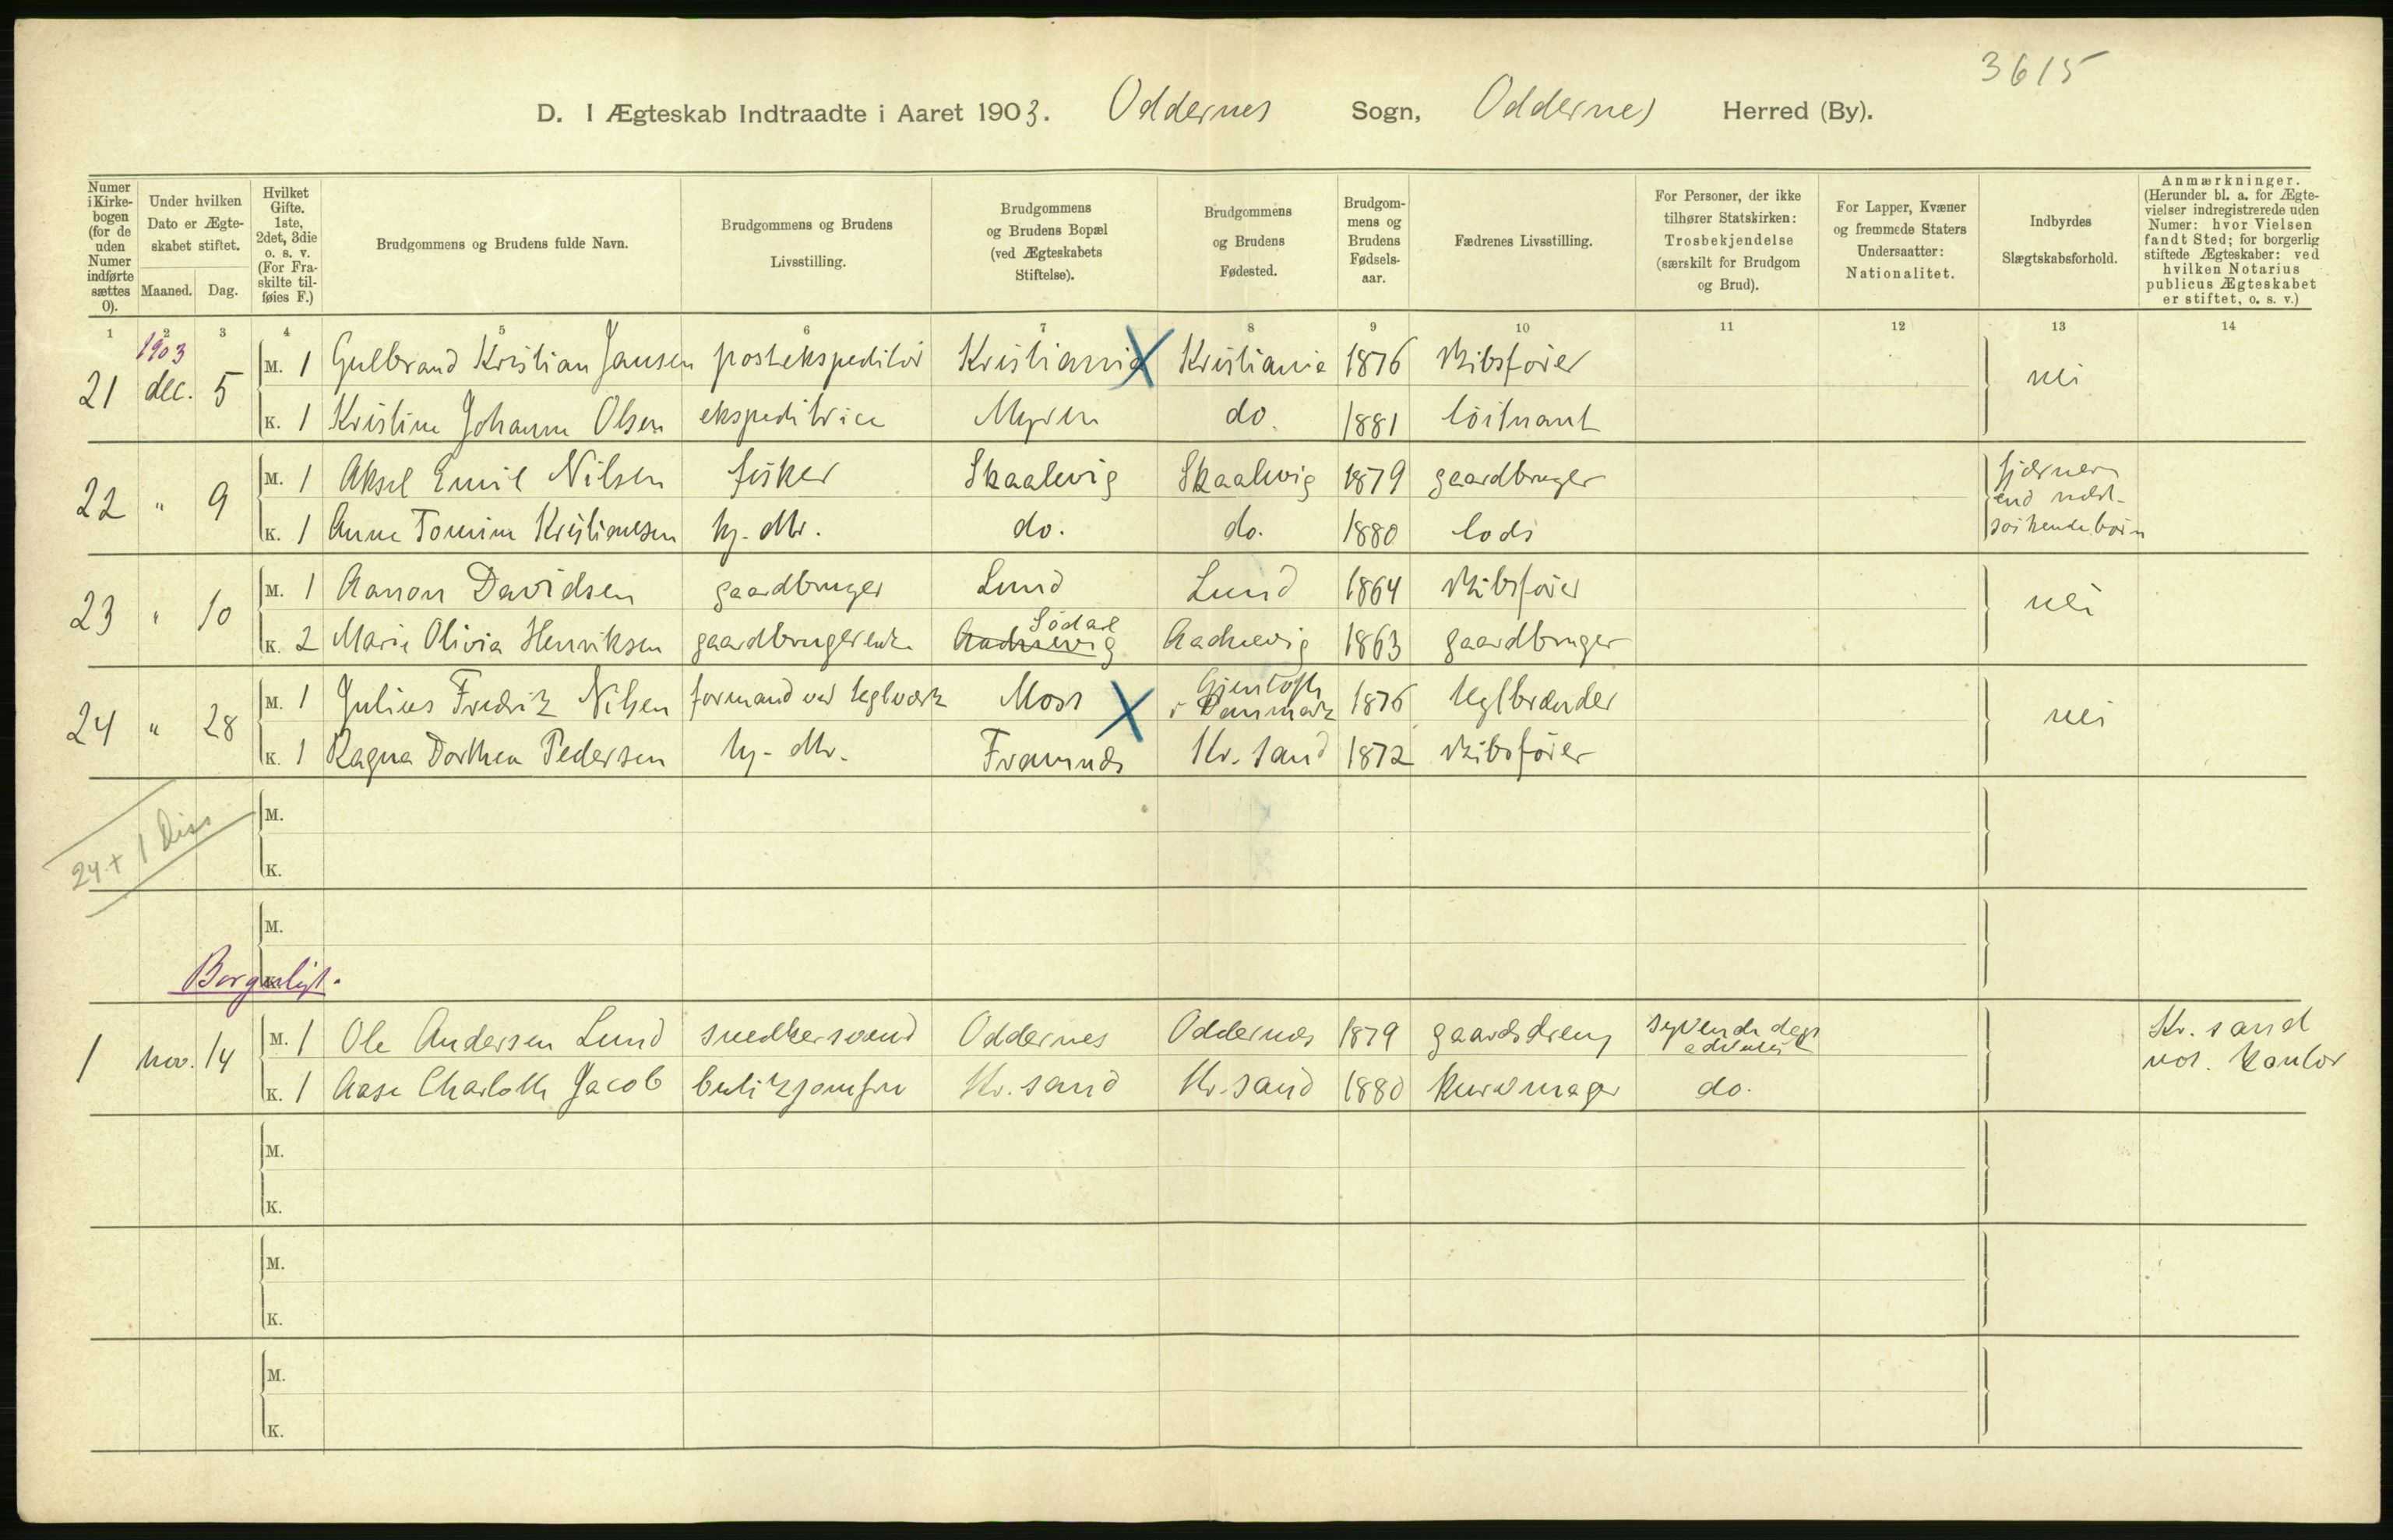 3615
D. I Ægteskab Indtraadte i Aaret 1903. Oddernes Sogn, Oddernes Herred (By).
Numer i Kirke-bogen (for de uden Numer indførte sættes 0).
Under hvilken Dato er Ægte-skabet stiftet.
Maaned. Dag.
Hvilket Gifte. 1ste, 2det, 3die o. s. v. (For Fra-skilte til-føies F.)
Brudgommens og Brudens fulde Navn.
Brudgommens og Brudens Livsstilling.
Brudgommens og Brudens Bopæl (ved Ægteskabets Stiftelse).
Brudgommens og Brudens Fødested.
Brudgom-mens og Brudens Fødsels-aar.
Fædrenes Livsstilling.
For Personer, der ikke tilhører Statskirken: Trosbekjendelse (særskilt for Brudgom og Brud).
For Lapper, Kvæner og fremmede Staters Undersaatter: Nationalitet.
Indbyrdes Slægtskabsforhold.
Anmærkninger. (Herunder bl. a. for Ægte-vielser indregistrerede uden Numer: hvor Vielsen fandt Sted; for borgerlig stiftede Ægteskaber: ved hvilken Notarius publicus Ægteskabet er stiftet, o. s. v.)
1 2 3 4 5 6 7 8 9 10 11 12 13 14
1903
21 dec. 5 M. 1 Gulbrand Kristian Jansen postekspeditør Kristiania X Kristiania 1876 skibsfører nei
K. 1 Kristine Johanne Olsen ekspeditrice Myren do. 1881 løitnant
22 " 9 M. 1 Aksel Emil Nilsen fisker Skaalevig Skaalevig 1879 gaardbruger fjærnere end næst-søskendebørn
K. 1 Anne Tomine Kristiansen hj. dtr. do. do. 1880 lods
23 " 10 M. 1 Aanon Davidsen gaardbruger Lund Lund 1864 skibsfører nei
K. 2 Marie Olivia Henriksen gaardbrugerenke Aadnevig Södal Aadnevig 1863 gaardbruger
24 " 28 M. 1 Julius Fredrik Nilsen formand ved teglværk Moss X Gjentofte i Danmark 1876 teglbrænder nei
K. 1 Ragna Dorthea Pedersen hj. dtr. Framnæs Kr.sand 1872 skibsfører
24 + 1 Diss
M.
K.
M.
K.
Borgerligt.
1 nov. 14 M. 1 Ole Andersen Lund snedkersvend Oddernes Oddernes 1879 gaardsdreng syvende dags adventist Kr. sand not. kontor
K. 1 Aase Charlotte Jacob butikjomfru Kr. sand Kr. sand 1880 kurvmager do.
M.
K.
M.
K.
M.
K.